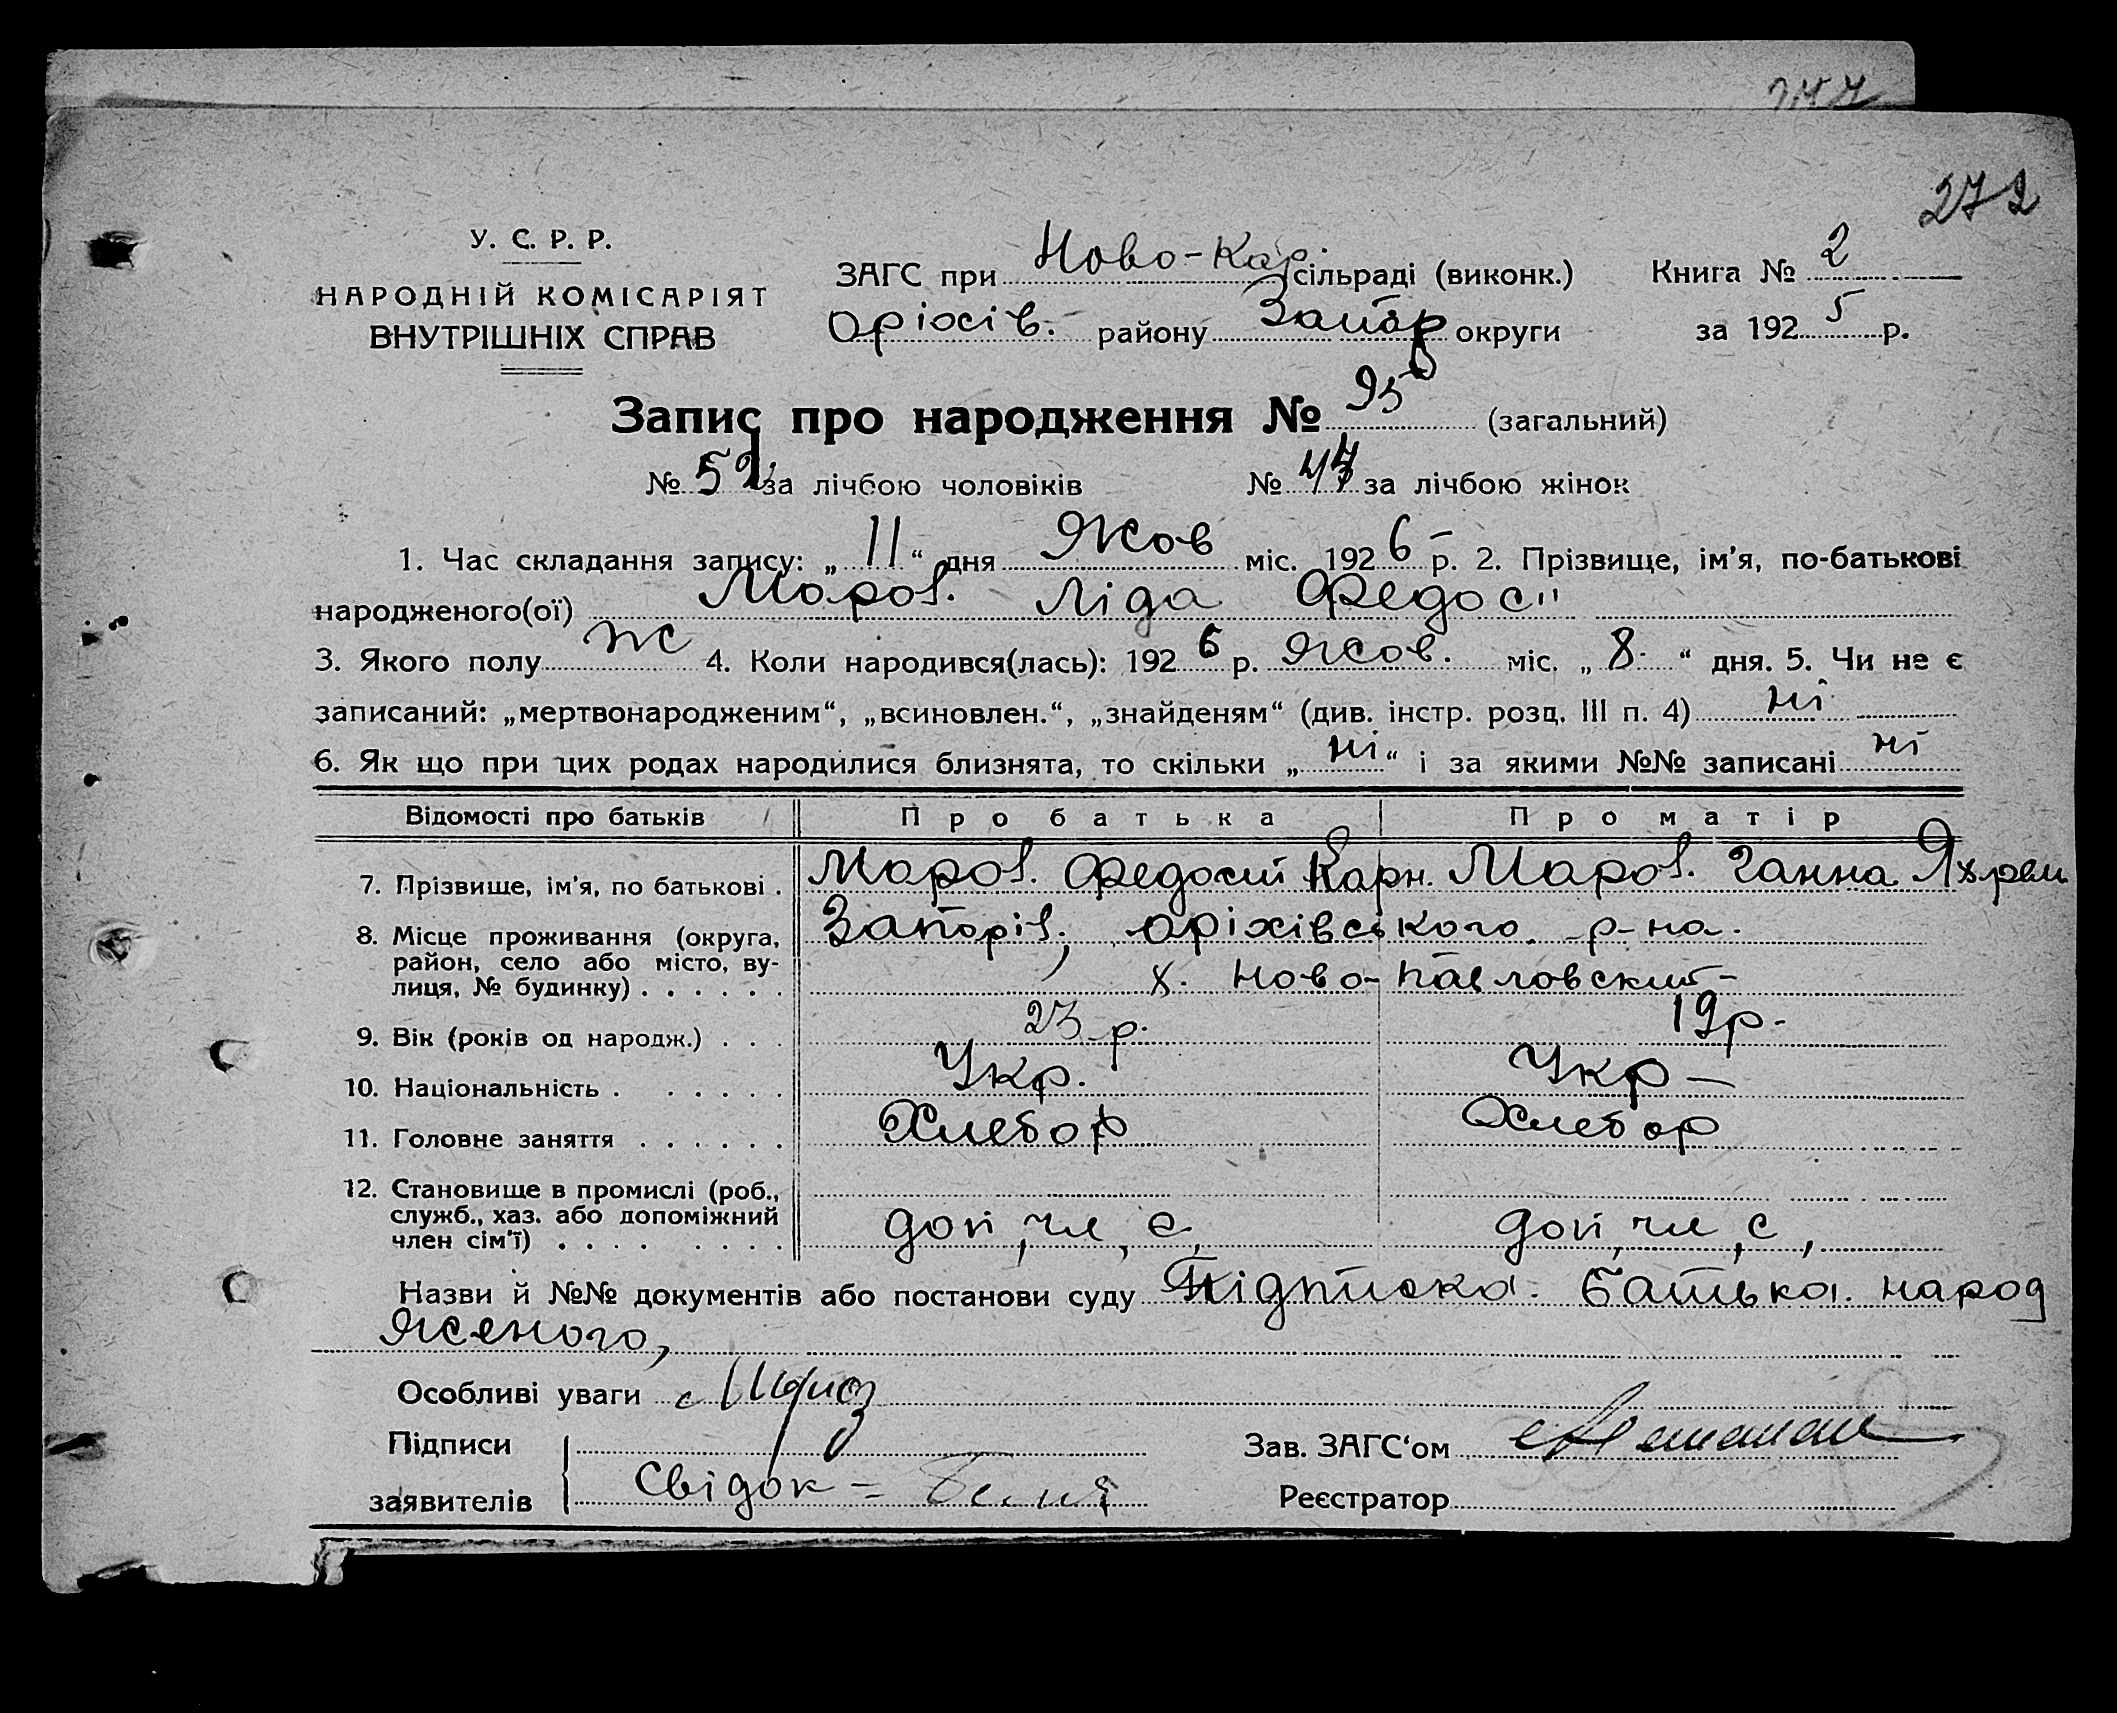 272
У. С. Р. Р.
НАРОДНІЙ КОМІСАРІЯТ
ВНУТРІШНІХ СПРАВ
ЗАГС при Ново-Кар. сільраді (виконк.) Книга № 2
Оріхів. району Запор округи за 1925 р.
Запис про народження № 95 (загальний)
№ 52 за лічбою чоловіків № 47 за лічбою жінок
1. Час складання запису: „ 11 “ дня Жов міс. 1926 р. 2. Прізвище, ім’я, по-батькові
народженого(ої) Мороз. Ліда Федосії
3. Якого полу ж 4. Коли народився(лась): 1926 р. Жов. міс. „ 8. “ дня. 5. Чи не є
записаний: „мертвонародженим“, „всиновлен.“, „знайденям“ (див. інстр. розд. III п. 4) ні
6. Як що при цих родах народилися близнята, то скільки „ ні “ і за якими №№ записані ні
Відомості про батьків Про батька Про матір
7. Прізвище, ім’я, по батькові . Мороз. Федосий Карн. Мороз. Ганна
8. Місце проживання (округа, Запоріз., оріхівського р-на.
район, село або місто, ву-
лиця, № будинку) . . . . . . х. Ново-Павловский
9. Вік (років од народж.) . . . 23 р. 19 р.
10. Національність . . . . . . . Укр. Укр
11. Головне заняття . . . . . . Хлебор Хлебор
12. Становище в промислі (роб.,
служб., хаз. або допоміжний доп, чл, с, доп, чл, с,
член сім’ї) . . . . . . . .
Назви й №№ документів або постанови суду Підписка. батька. народ
женого,
Особливі уваги Мороз
Підписи Зав. ЗАГС‘ом
заявителів Свідок = Реєстратор